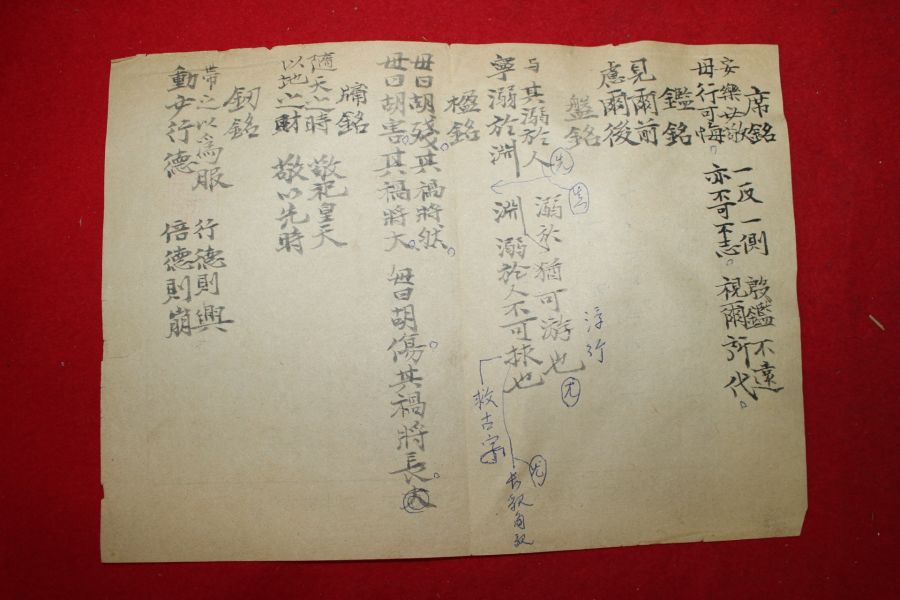 席銘
安樂必敬 一反一側 殷鑑不遠
毋行可悔。 亦不可不志。 視爾所代。
鑑銘
見爾前
慮爾後
盤銘
与其溺於人 溺於猶可游也
寧溺於淵 淵 溺於人不可捄也
浮行
尤
救古字
楹銘
毋曰胡殘其禍將然。
毋曰胡害。其禍將大。 毋曰胡傷。其禍將長。
牖銘
隨天之時 敬祀皇天
以地之財 敬以先時
劒銘
帶之以為服 行德則興
動必行德 倍德則崩